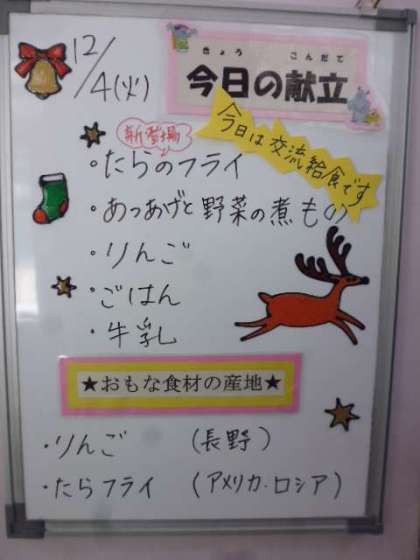 12/4(火)
きょう こんだて
今日の献立
今日は交流給食です
新登場
・たらのフライ
・あつあげと野菜の煮もの
・りんご
・ごはん
・牛乳
★おもな食材の産地★
・りんご (長野)
・たらフライ (アメリカ・ロシア)